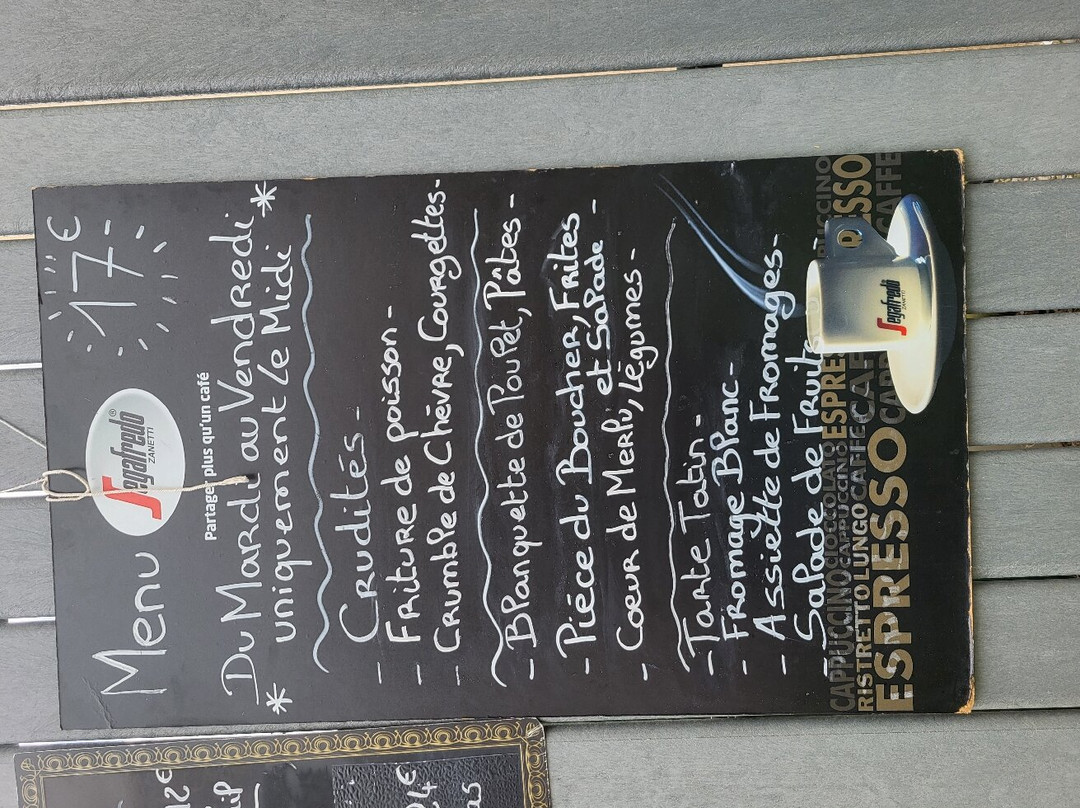 Menu
17€
Segafredo®
ZANETTI
Partagez plus qu'un café
Du Mardi au Vendredi
* uniquement le Midi *
- Crudités -
- Friture de poisson -
- Crumble de Chèvre, Courgettes -
- Blanquette de Poulet, Pâtes -
- Pièce du Boucher, Frites
et Salade -
- Coeur de Merlu, Légumes -
- Tarte Tatin -
- Fromage Blanc -
- Assiette de Fromages -
- Salade de Fruits -
CAPPUCCINO CIOCCOLATO ESPRESSO
CAPPUCCINO
RISTRETTO LUNGO CAFFE
ESPRESSO
CAFFE
Segafredo
ZANETTI
12€